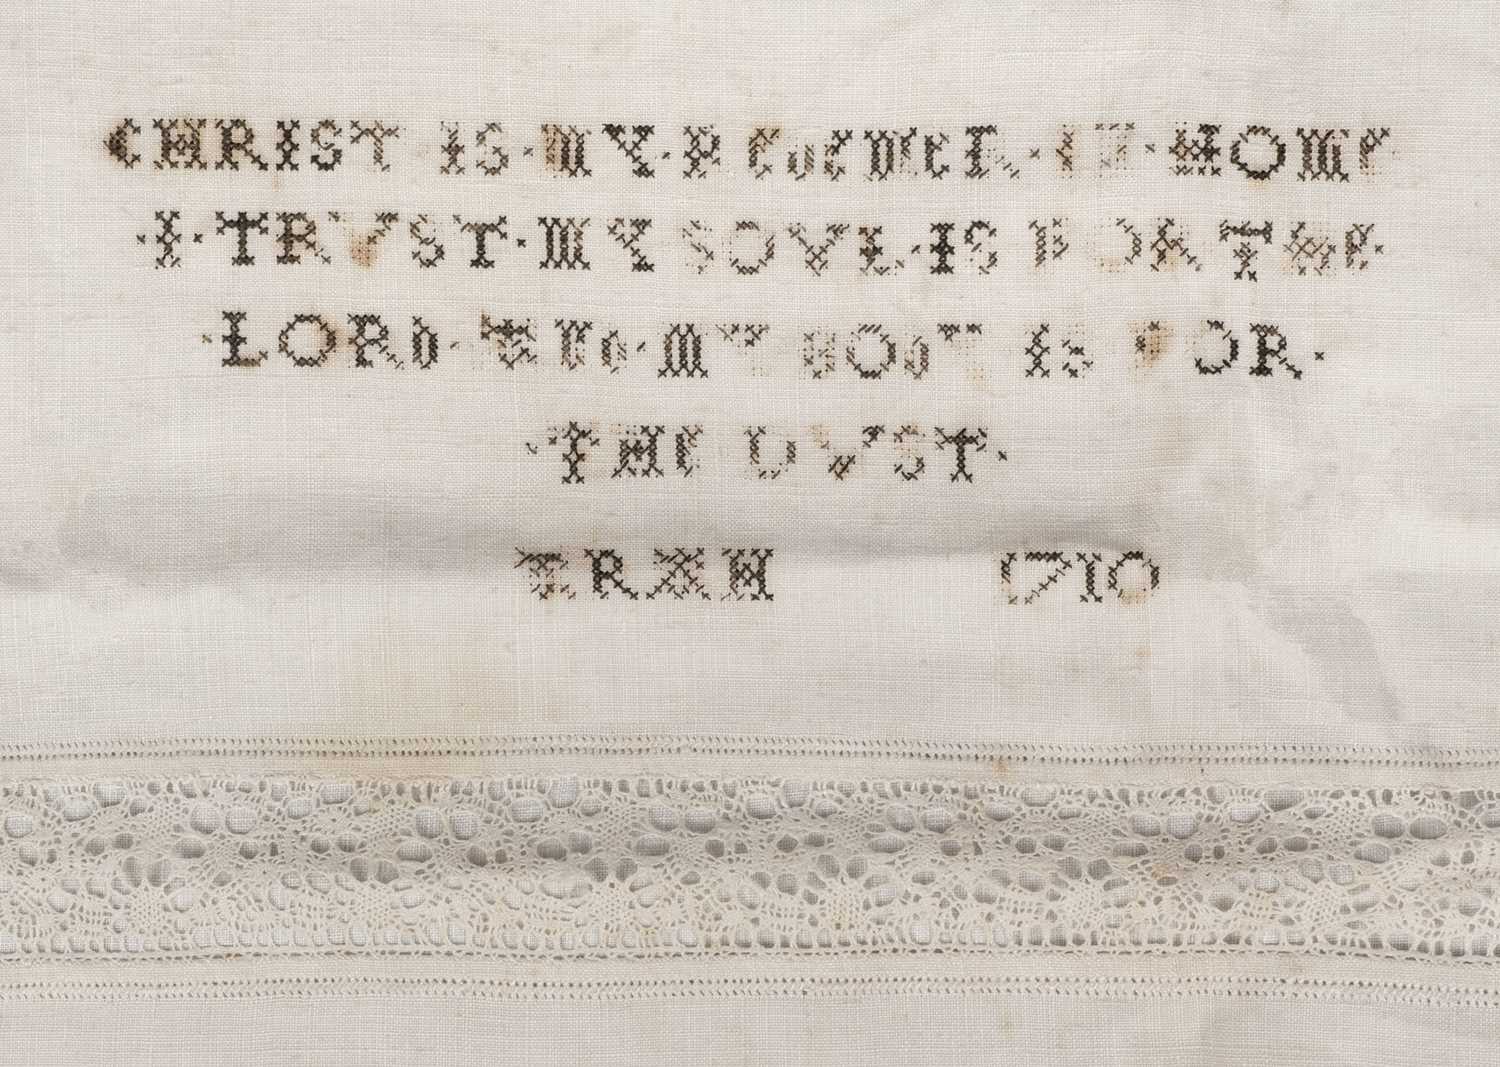 CHRIST IS · MY · P IN · HOME
· I · TRVST · MY SOVL IS FOR THE ·
· LORD AND · MY BODY IS FOR ·
· THE DVST ·
TRAH 1710